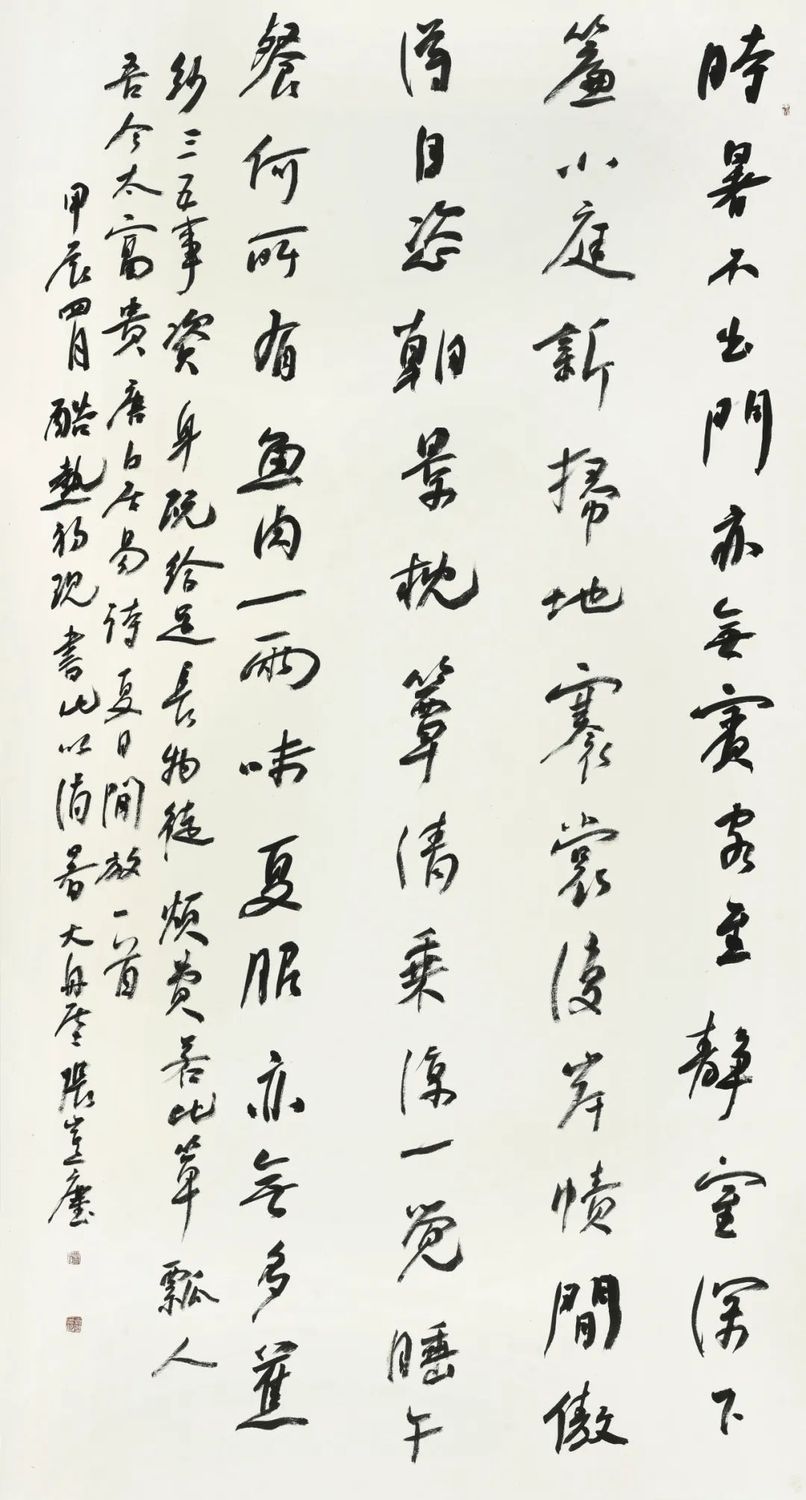 時暑不出門亦無賓客至靜室深下
簾小庭新掃地褰裳復岸幘間傲
得自恣朝景枕簟清乘涼一覺睡午
餐何所有魚肉一兩味夏服亦無多蕉
紗三五事資身既給足長物徒煩費若比簞瓢人
吾今太富貴唐白居易詩夏日間放一首
甲辰四月酷熱初現書此以消暑大舟張塵